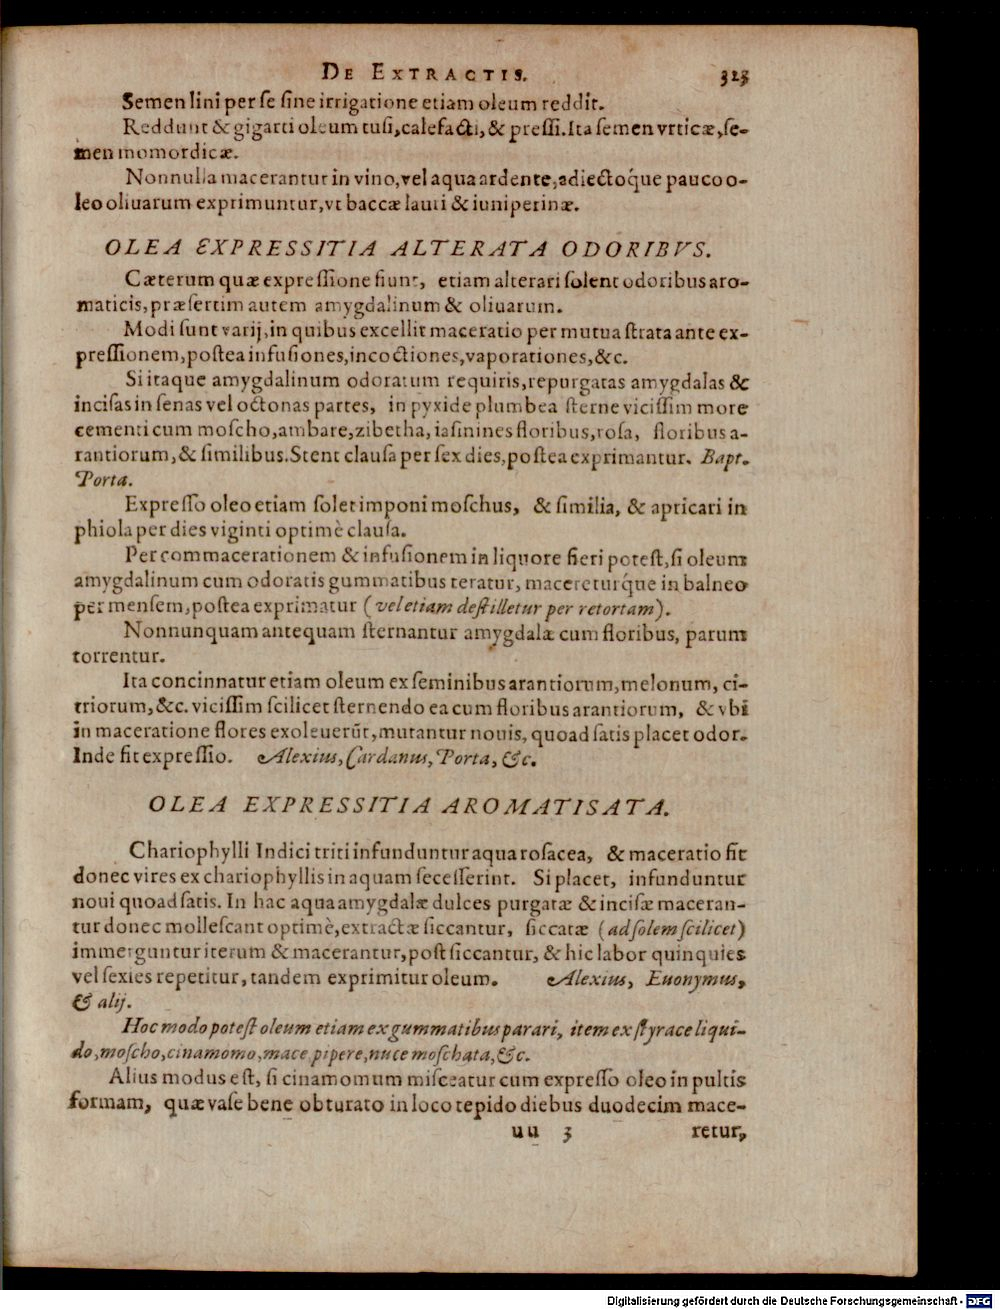 DE EXTRACTIS. 323
Semen lini per se sine irrigatione etiam oleum reddit.
Reddunt & gigarti oleum tusi, calefacti, & pressi. Ita semen vrticæ, se-
men momordicæ.
Nonnulla macerantur in vino, vel aqua ardente, adiectoq́ue pauco o-
leo oliuarum exprimuntur, vt baccæ lauri & iuniperinæ.
OLEA EXPRESSITIA ALTERATA ODORIBVS.
Cæterum quæ expressione fiunt, etiam alterari solent odoribus aro-
maticis, præsertim autem amygdalinum & oliuarum.
Modi sunt varij, in quibus excellit maceratio per mutua strata ante ex-
pressionem, postea infusiones, incoctiones, vaporationes, &c.
Si itaque amygdalinum odoratum requiris, repurgatas amygdalas &
incisas in senas vel octonas partes, in pyxide plumbea sterne vicissim more
cementi cum moscho, ambare, zibetha, iasinines floribus, rosa, floribus a-
rantiorum, & similibus. Stent clausa per sex dies, postea exprimantur. Bapt.
Porta.
Expresso oleo etiam solet imponi moschus, & similia, & apricari in
phiola per dies viginti optimè clausa.
Per commacerationem & infusionem in liquore fieri potest, si oleum
amygdalinum cum odoratis gummatibus teratur, macereturq́ue in balneo
per mensem, postea exprimatur (vel etiam destilletur per retortam).
Nonnunquam antequam sternantur amygdalæ cum floribus, parum
torrentur.
Ita concinnatur etiam oleum ex seminibus arantiorum, melonum, ci-
triorum, &c. vicissim scilicet sternendo ea cum floribus arantiorum, & vbi
in maceratione flores exoleuerūt, mutantur nouis, quoad satis placet odor.
Inde fit expressio. Alexius, Cardanus, Porta, &c.
OLEA EXPRESSITIA AROMATISATA.
Chariophylli Indici triti infunduntur aqua rosacea, & maceratio fit
donec vires ex chariophyllis in aquam secesserint. Si placet, infunduntur
noui quoad satis. In hac aqua amygdalæ dulces purgatæ & incisæ maceran-
tur donec mollescant optimè, extractæ siccantur, siccatæ (ad solem scilicet)
immerguntur iterum & macerantur, post siccantur, & hic labor quinquies
vel sexies repetitur, tandem exprimitur oleum. Alexius, Euonymus,
& alij.
Hoc modo potest oleum etiam ex gummatibus parari, item ex styrace liqui-
do, moscho, cinamomo, mace pipere, nuce moschata, &c.
Alius modus est, si cinamomum misceatur cum expresso oleo in pultis
formam, quæ vase bene obturato in loco tepido diebus duodecim mace-
uu 3 retur,
Digitalisierung gefördert durch die Deutsche Forschungsgemeinschaft - DFG